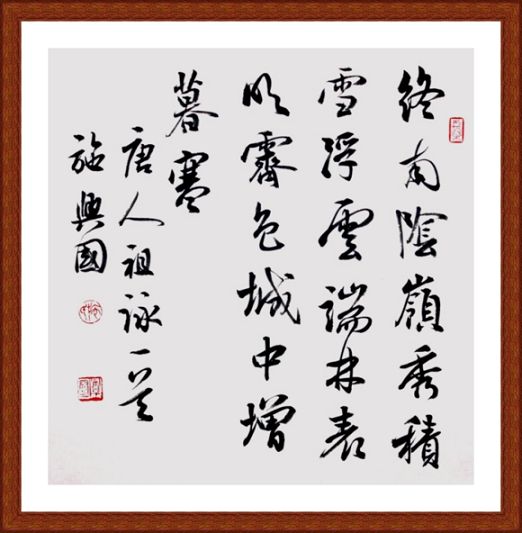 終南陰嶺秀積
雪浮雲端林表
明霽色城中增
暮寒
唐人祖詠一首
施興國